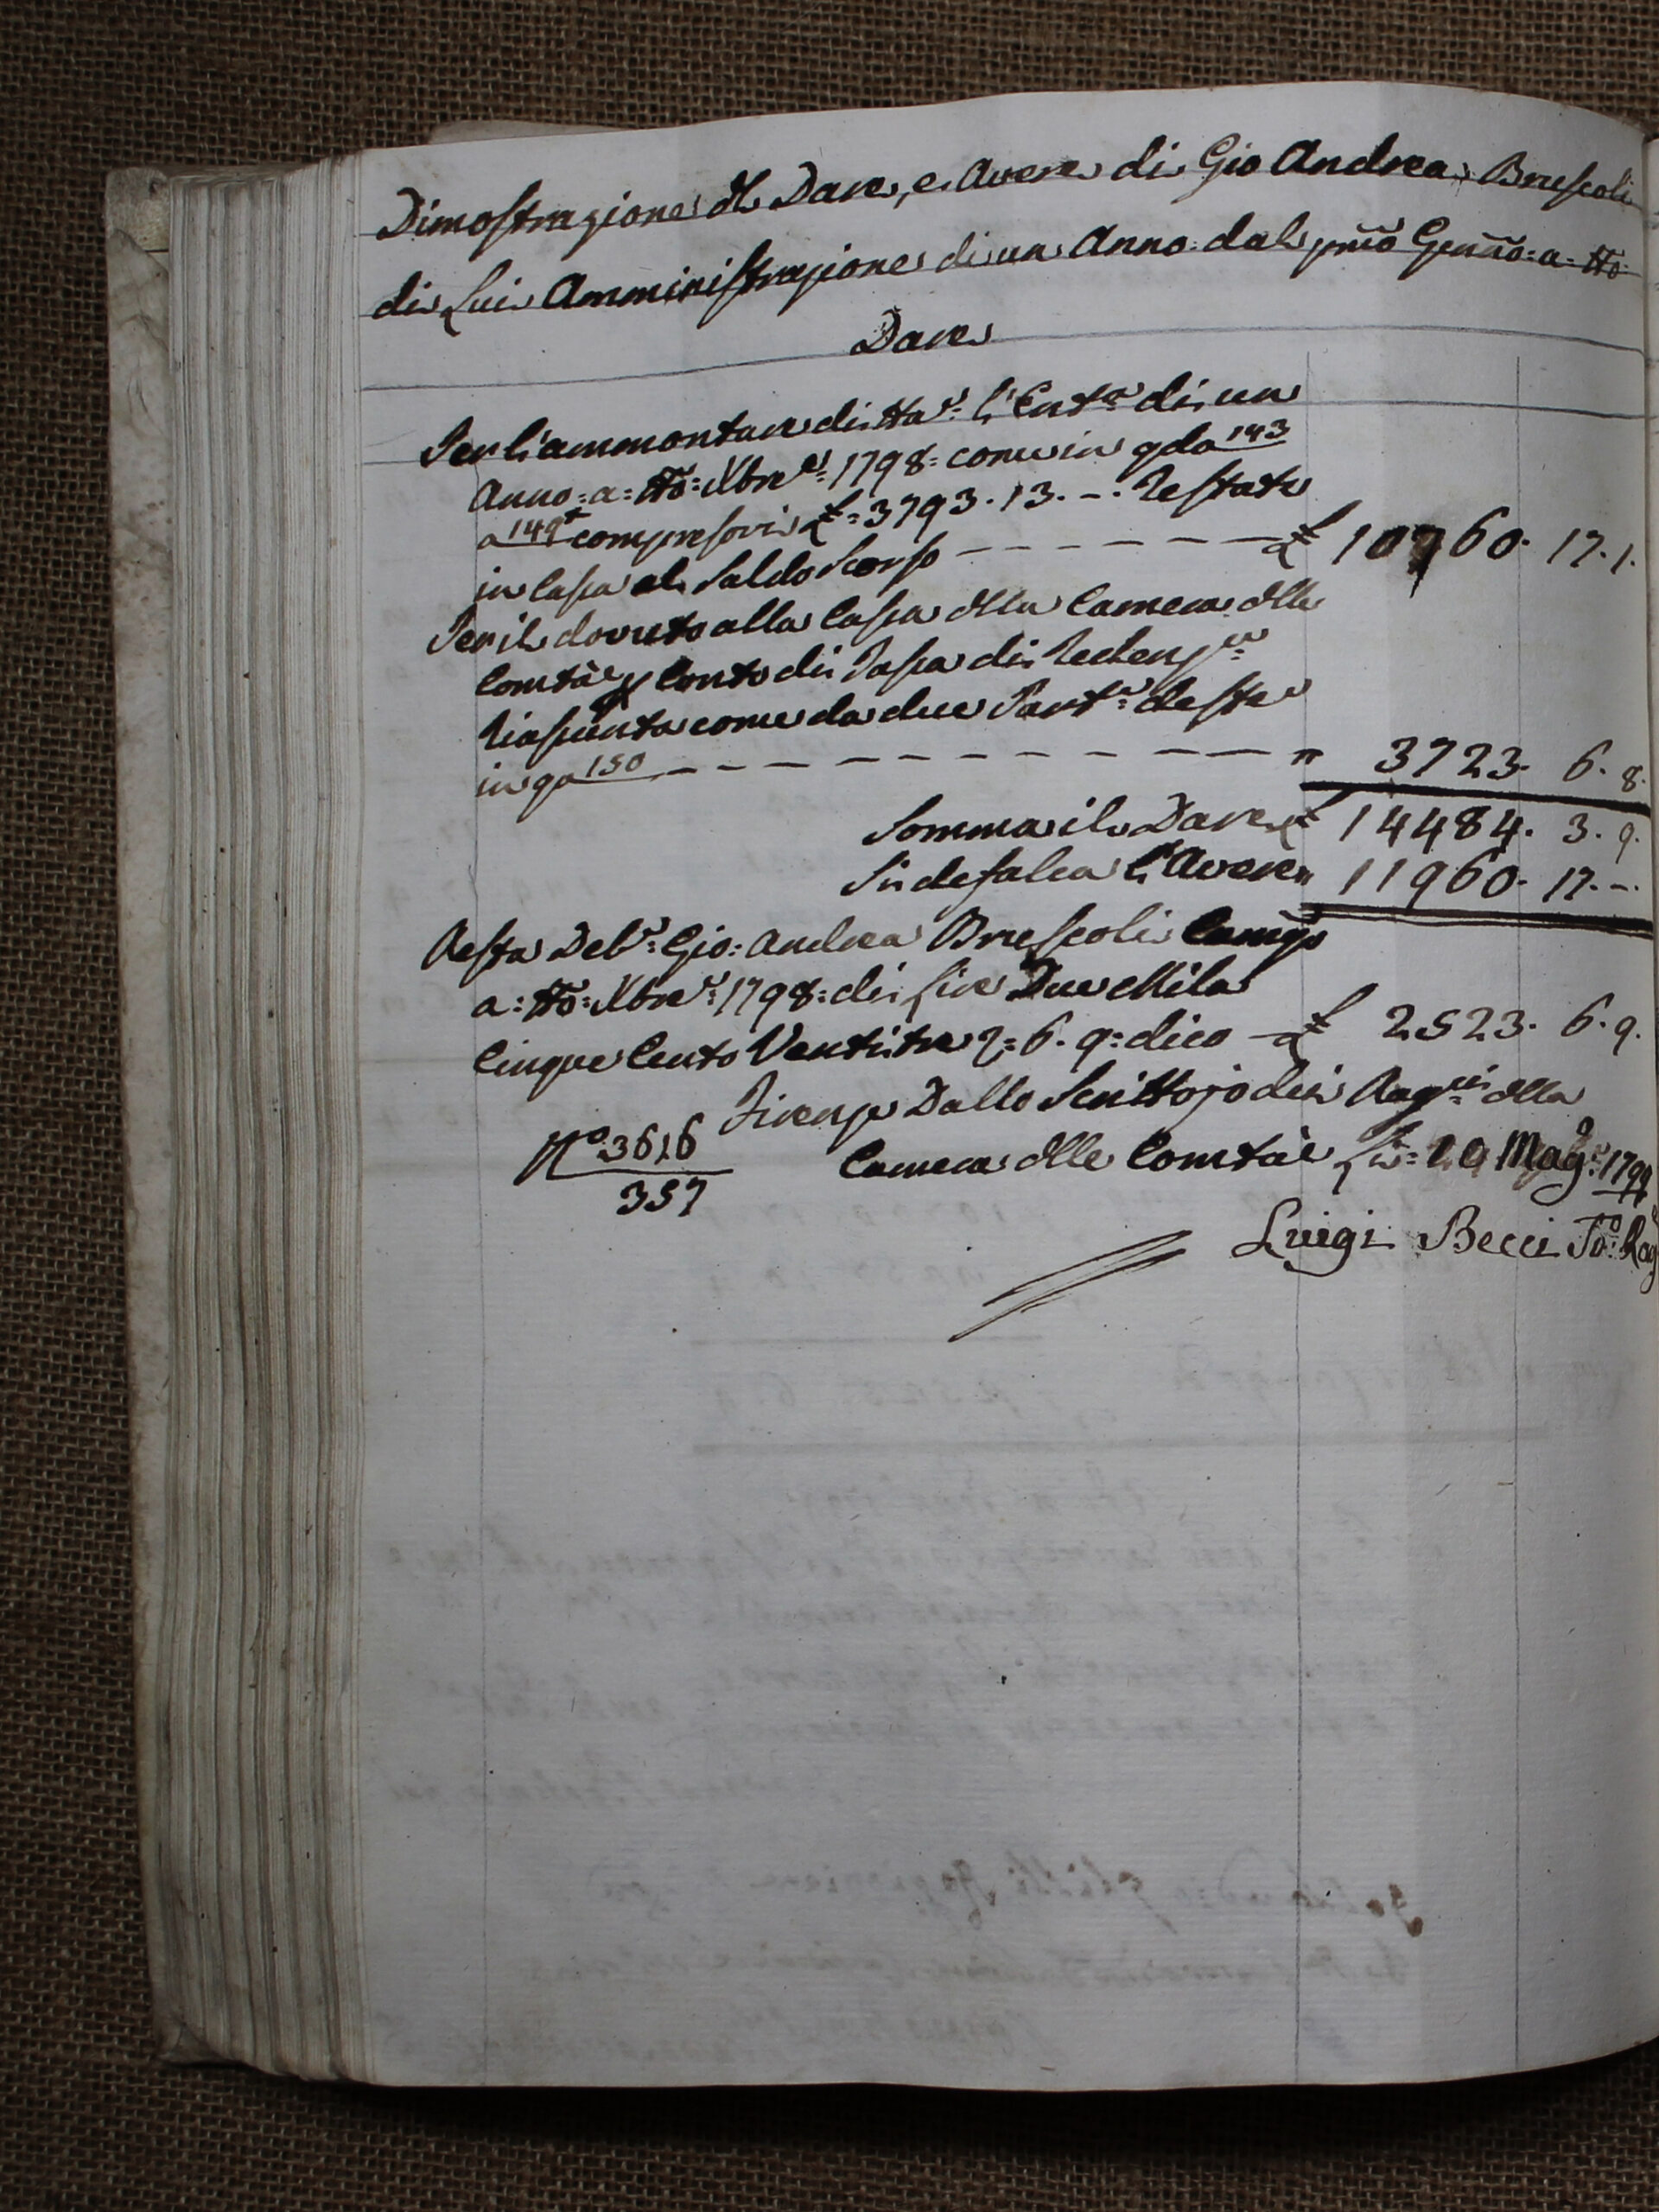 Dimostrazione dl Dare, e Avere di Gio Andrea Bruscoli
di Lui Amministrazione di un Anno dal pmo Genno: a: tto
Dare
Per l'ammontare di tta l'Enta di un
Anno: a: tto: Xbre: 1798: come in qda 143
a 149 compresovi £ 3793. 13. -. Restate
in Cassa al Saldo Scorso - - - - - - - £ 10760. 17. 1.
Per il dovuto alla Cassa dlla Camera dlle
Comtà p Conto di Tassa di Redenze
Riassunta come da due Parte deste
in qa 150 - - - - - - - - - - " 3723. 6. 8.
Somma il Dare £ 14484. 3. 9.
Si defalca l'Avere " 11960. 17. -.
Resta Debe: Gio: Andrea Bruscoli Camgo
a: tto: Xbre: 1798: di Lire Due Mila
Cinque Cento Ventitre 2: 6. 9: dico £ 2523. 6. 9.
Firenze Dallo Scrittojo dei Ragri dlla
Camera dlle Comtà Li: Mago: 1799
No 3616
357
Luigi Becci Rag